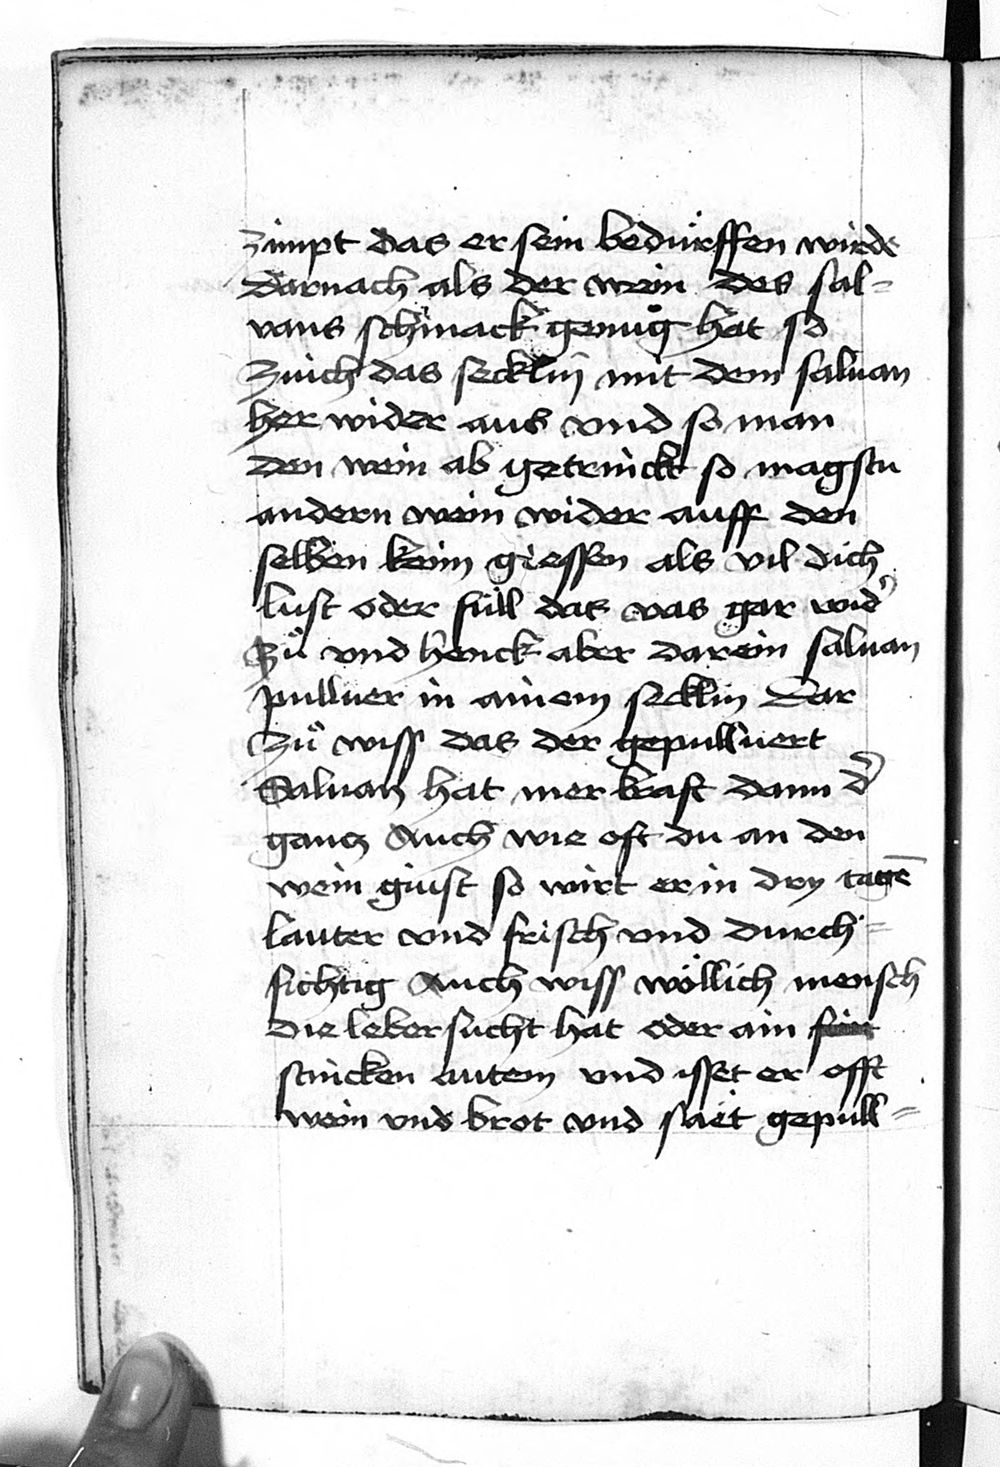 zimpt das er sein bedürffen wirde
Darnach als der wein des sal=
vans schmack genuͦg hat so
zuich das secklin mit dem saluan
her wider aus vnd so man
den wein ab getrinckt so magstu
andern wein wider auff den
selben keim giessen als vil dich
lust oder füll das vas gar wid'
zuͦ vnd henck aber darein saluan
pulluer in ainem secklin Dar
zuͦ wiss das der gepulluert
Saluan hat mer kraft dann d'
gantz Auch wie oft du an den
wein giust so wirt er in dry tagē
lauter vnd frisch vnd durch=
sichtig Auch wiss wöllich mensch
die lebersucht hat oder ain
stincken autem vnd isset er offt
wein vnd brot vnd säet gepull=